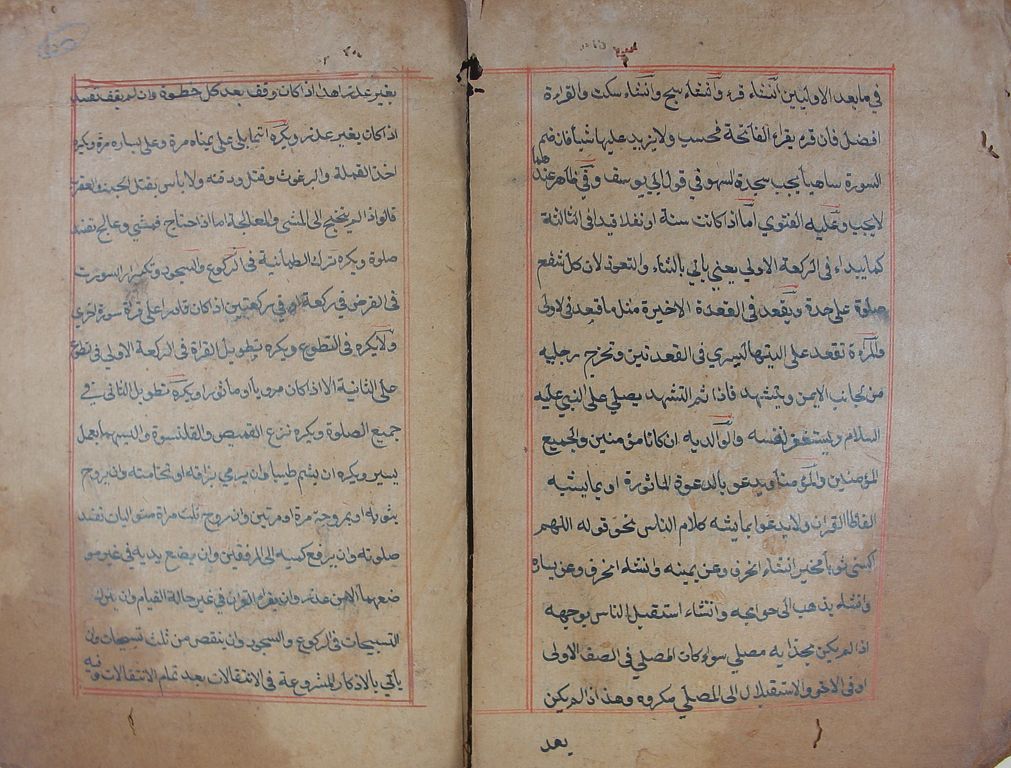 في ما بعد الاوليين انشاء قرء وانشاء سبح وانشاء سكت والقراءة
افضل فان قرء يقراء الفاتحة فحسب ولا يزيد عليها شيأ فان ضم
السورة ساهيا يجب سجدة السهو في قول ابي يوسف وفي ظاهر
لا يجب وعليه الفتوي اما اذا كانت سنة او نفلا فيبدا في الثالثة
كما يبداء في الركعة الاولي يعني ياتي بالثناء والتعوذ لان كل شفع
صلوة علي حدة ويقعد في القعدة الاخيرة مثل ما قعد في الاولي
والمرءة تقعد علي اليتها اليسري في القعدتين وتخرج رجليه
من الجانب الايمن ويتشهد فاذا تم التشهد يصلي علي النبي عليه
السلام ويستغفر لنفسه ولوالديه ان كانا مؤمنين والجميع
المؤمنين والمؤمنات ويدعو بالدعوة الماثورة او بما يشبه
الفاظ القران ولا يدعوا بما يشبه كلام الناس نحو قوله اللهم
اكسني ثوبا انشاء انحرف وعن يمينه وانشاء انحرف وعن يساره
وانشاء يذهب الي حوايجه وانشاء استقبل الناس بوجهه
اذا لم يكن بحذايه مصلي سواء كان المصلي في الصف الاولي
او في الاخر والاستقبلال الي المصلي مكروه وهذا اذا لم يكن
بعد
بغير عذر هذا اذا كان وقف بعد كل خطوة وان لم يقف تفسد
اذا كان بغير عذر ويكره التمايل علي يمناه مرة وعلي يساره مرة ويكره
اخذ القملة والبرغوث وقتل ودفنه ولا باس بقتل الحية والعقرب
قالوا اذا لم يحتج الي المشي والمعالجة اما اذا احتاج فمشي وعالج تفسد
صلوة ويكره ترك الطمانية في الركوع والسجود وتكرار السورة
في الفرض في ركعة في ركعتين اذا كان قادرا علي قرءة سورة اخري
ولا يكره في التطوع ويكره تطويل القراة في الركعة الاولي في تطوع
علي الثانية الا اذا كان مرويا او ماثورا ويكره تطويل الثاني في
جميع الصلوة ويكره نزع القميص والقلنسوة ولبسهما بعمل
يسير ويكره ان يشم طيبا وان يرمي بزاقه او نخامته وان يروح
بثوبه او بمروحة مرة او مرتين وان روح ثلث مراة متواليات تفسد
صلوته وان يرفع كميه الي المرفقين وان يضع يديه في غير مو
ضعهما الا من عذر وان يقراء القران في غير حالة القيام وان يترك
التسبيحات في الركوع والسجود وان ينقص من ثلث تسبيحات وان
ياتي بالاذكار المشروعة في الانتقالات بعد تمام الانتقالات